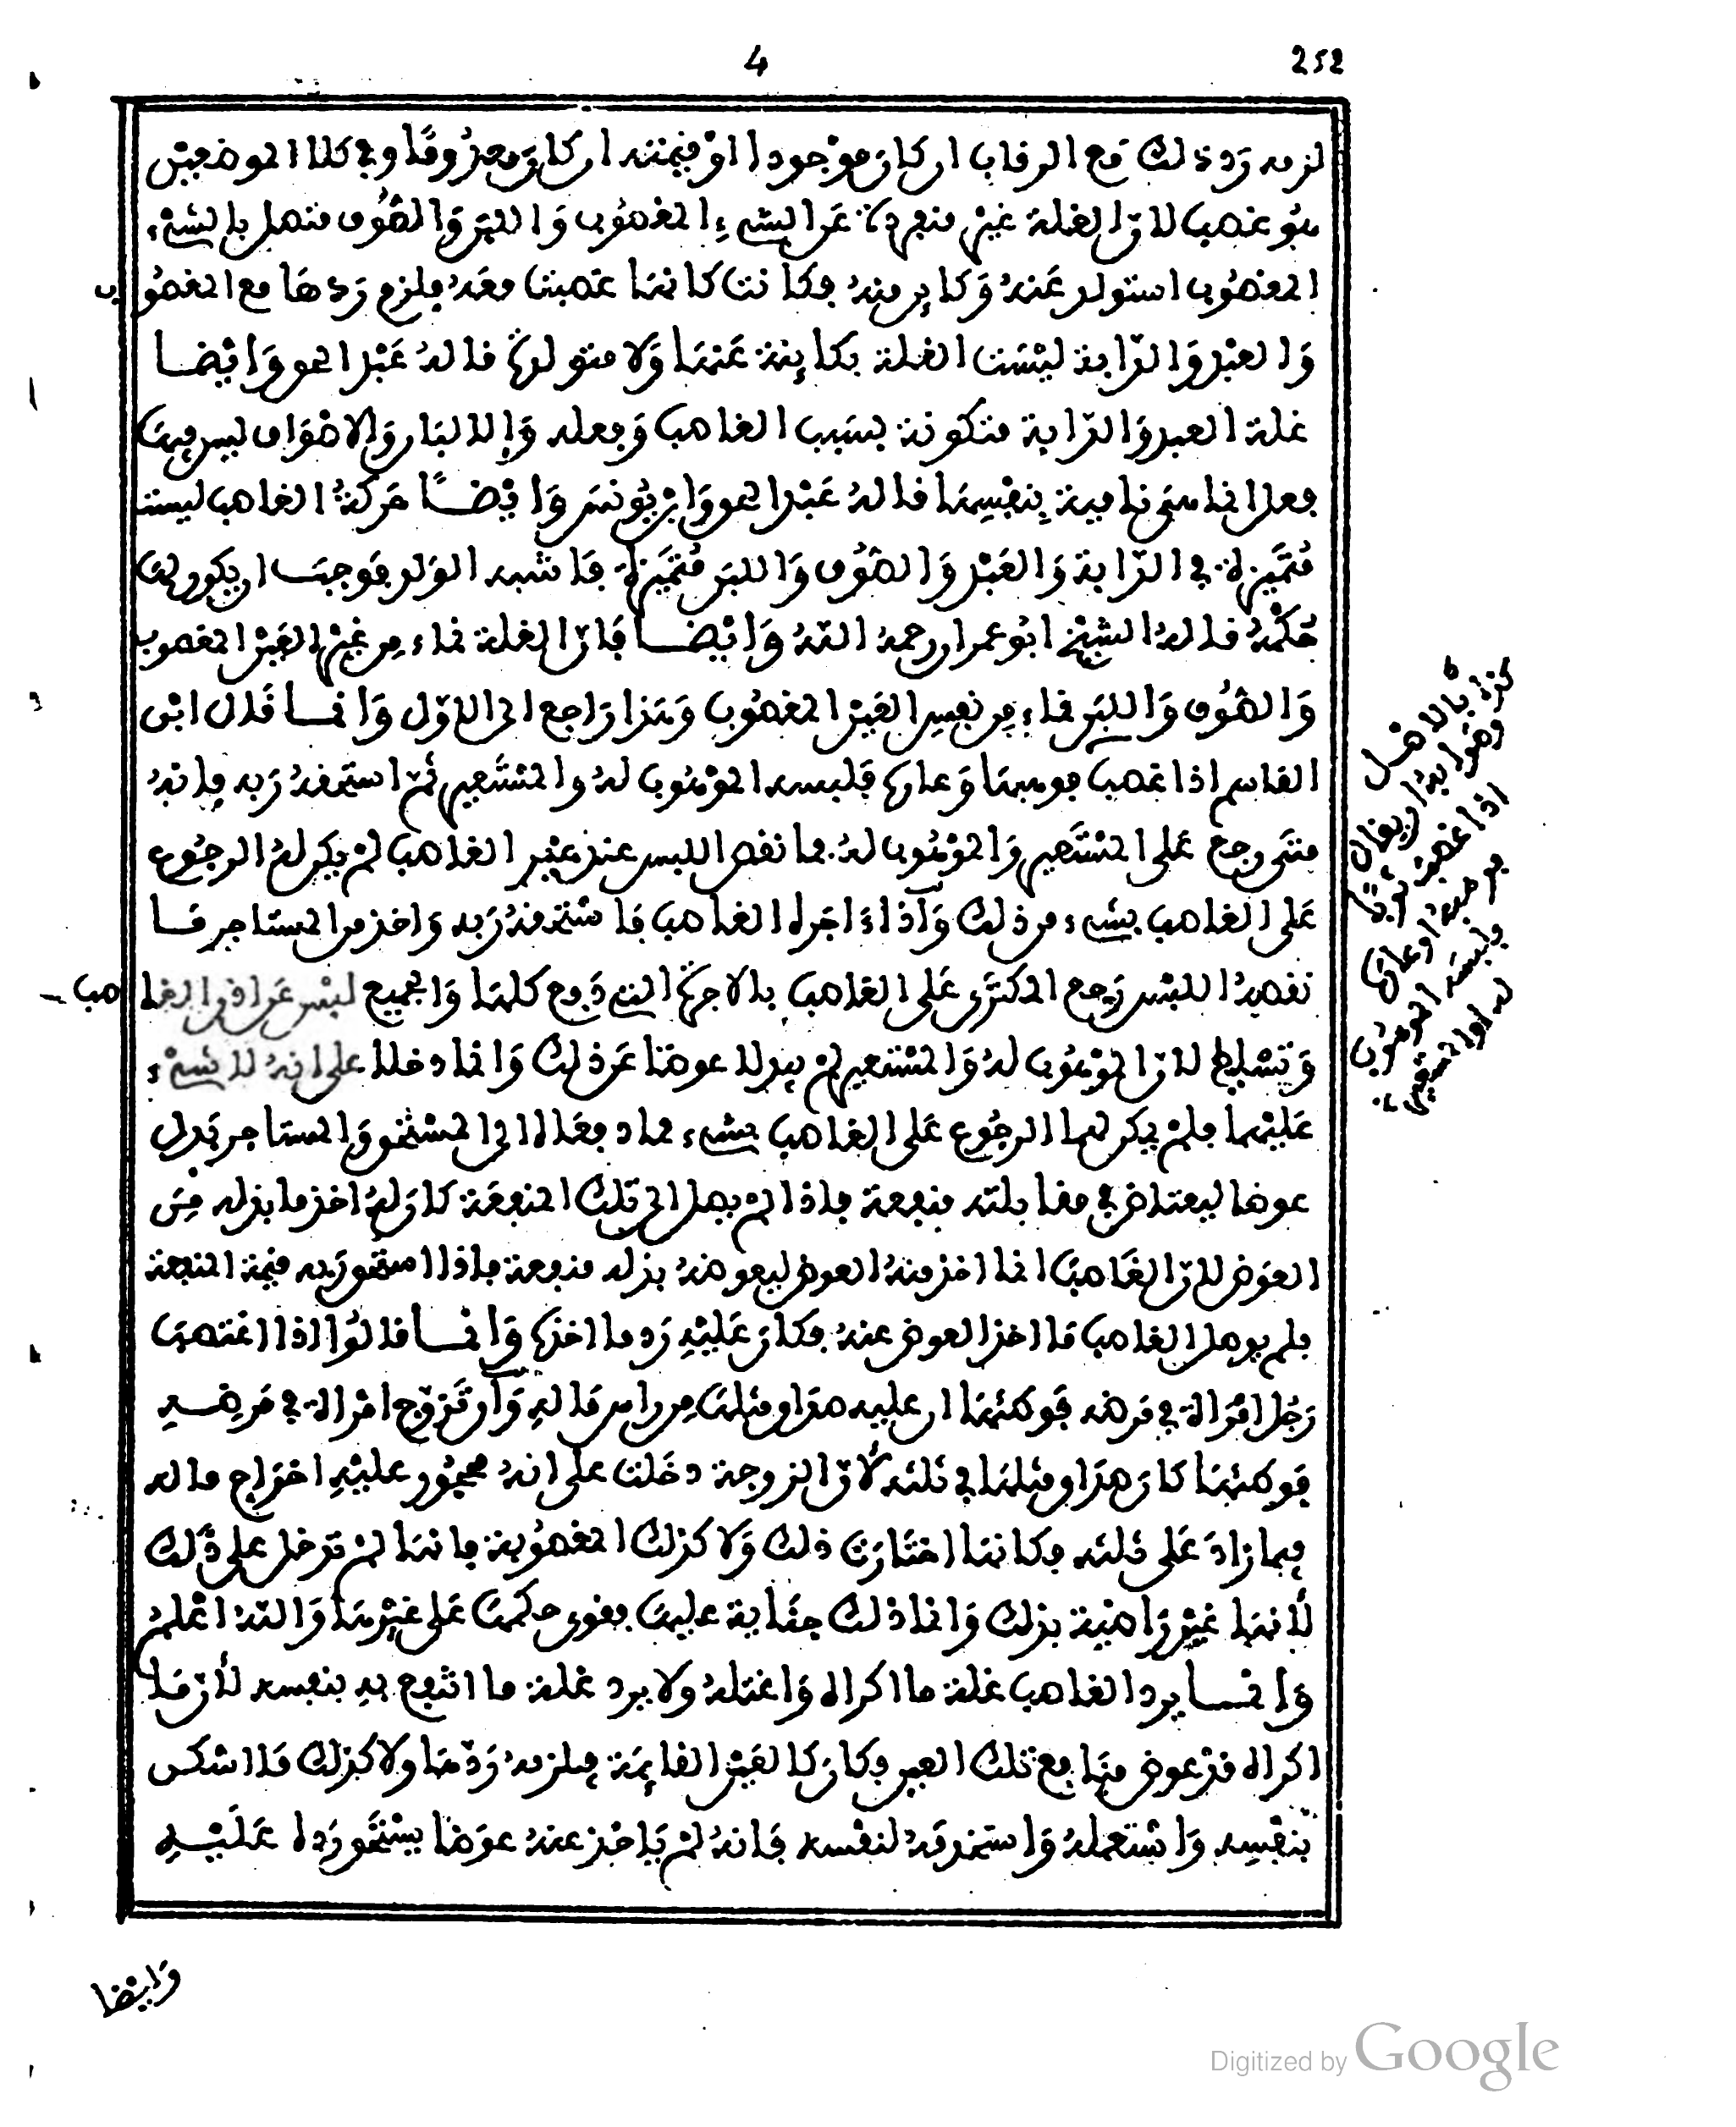 4
252
لزمه رد ذلك مع الرقاب ان كان موجودا او قيمته ان كان معروفا وفي كلا الموضعين
هو غصب لان الغلة غير منفردة عن الشيء المغصوب واللبن والصوف متصل بالشيء
المغصوب استولد عنه وكاين منه فكانت كانها غصبت معه فلزم ردها مع المغصوب
والعبد والدابة ليست الغلة بكاينة عنها ولا متولدة قاله عبد الحق وايضا
غلة العبد والدابة متكونة بسبب الغاصب وفعله والالبان والاصواف ليس فيها
فعل انما هي نامية بنفسها قاله عبد الحق وابن يونس وايضا حركة الغاصب ليست
متميزة في الدابة والعبد والصوف واللبن متميزة فاشبه الولد فوجب ان يكون لها
حكمه قاله الشيخ ابو عمران رحمه الله وايضا فان الغلة نماء من غير العين المغصوب
والصوف واللبن نماء من نفس العين المغصوب وهذا راجع الى الاول وانما قال ابن
القاسم اذا غصب قوسا وعارة فلبسه الموهوب له والمستعير ثم استحقه ربه فانه
متى رجع على المستعير والموهوب له بما نقص اللبس عند غير الغاصب لم يكن له الرجوع
على الغاصب بشيء من ذلك واذا اجره الغاصب فاستحقه ربه واخذ من المستاجر ما
نقصه اللبس رجع المكتري على الغاصب بالاجرة التي دفع كلها والجميع ليس عن اذن الغاصب
وتسليط لان الموهوب له والمستعير لم يبذلا عوضا عن ذلك وانما دخلا على انه لا شيء
عليهما فلم يكن لهما الرجوع على الغاصب بشيء مما دفعاه الى المستحق والمستاجر بذل
عوضا ليعتاض في مقابلته منفعة فاذا لم يصل الى تلك المنفعة كان له اخذ ما بذله من
العوض لان الغاصب انما اخذ منه العوض ليعوضه بذله منفعة فاذا استحق ربه قيمة المنفعة
فلم يوصل الغاصب ما اخذ العوض عنه فكان عليه رد ما اخذه وانما قالوا اذا اغتصب
رجل امراة في مرضه فوطئها ان عليه صداق مثلها من راس ماله وان تزوج امراة في مرضه
فوطئها كان صداق مثلها في ثلثه لان الزوجة دخلت على انه محجور عليه اخراج ماله
فيما زاد على ثلثه فكانها اختارت ذلك ولا كذلك المغصوبة فانها لم تدخل على ذلك
لانها غير راضية بذلك وانما ذلك جناية عليها بقوى حكمها على غيرها والله اعلم
وانما يرد الغاصب غلة ما اكراه واغتله ولا يرد غلة ما انتفع به بنفسه لان ما
اكراه قد عوض منها مع تلك العين فكان كالعين القايمة فيلزمه ردها ولا كذلك ما اسكن
بنفسه واستعمله واستخدمه لنفسه فانه لم ياخذ عنه عوضا يستحق رده عليه
وايضا
كذا بالاصل
وصوابه ان يقال
اذا غصب ثوبا
فوهبه او عاره
ولبسه الموهوب
له او المستعير
Digitized by Google